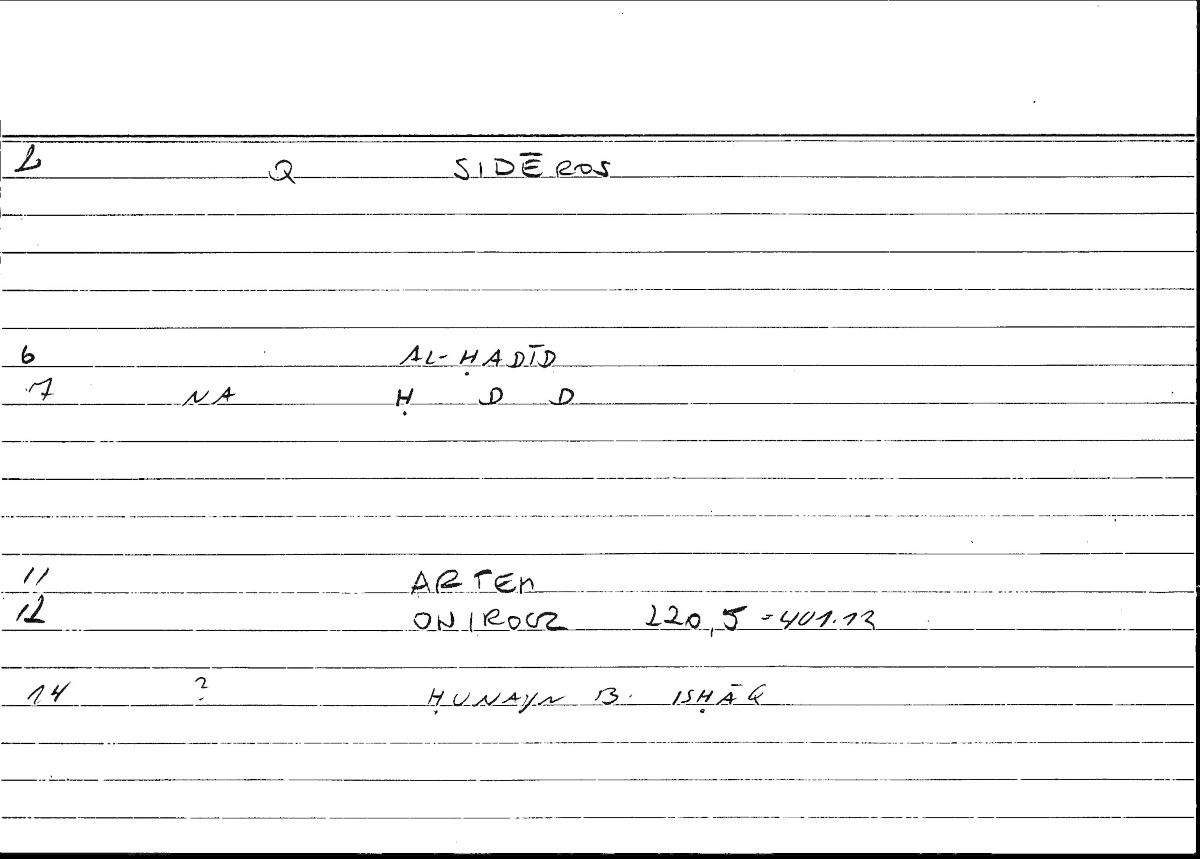 2 Q SIDĒROS
6 AL-ḤADĪD
7 NA Ḥ D D
11 ARTEM
12 ONIROCR 220,5 = 401.13
14 ? ḤUNAYN B. ISḤĀQ